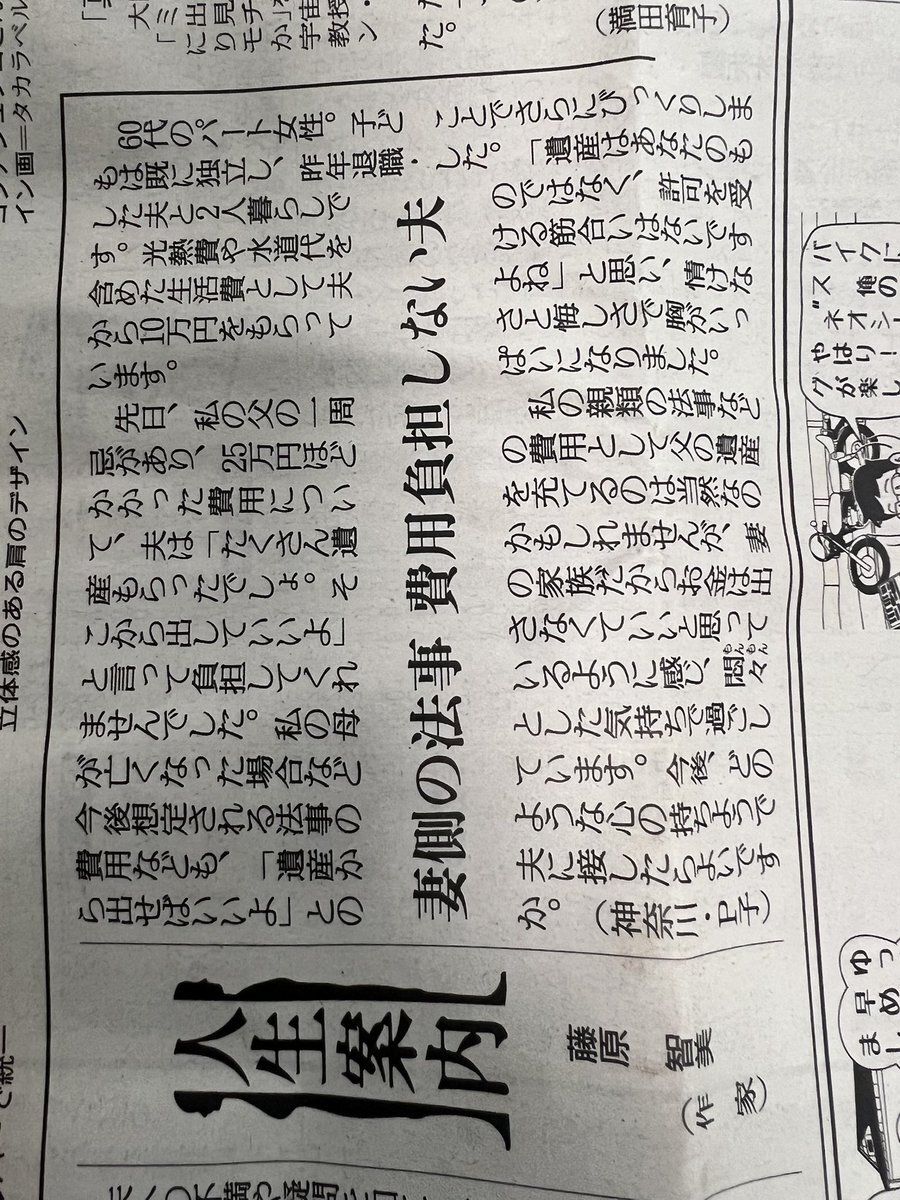 (満田育子)
イン画=タカラベル
立体感のある肩のデザイン
妻側の法事 費用負担しない夫
60代のパート女性。子ど
もは既に独立し、昨年退職
した夫と2人暮らしで
す。光熱費や水道代を
含めた生活費として夫
から10万円をもらって
います。
先日、私の父の一周
忌があり、25万円ほど
かかった費用につい
て、夫は「たくさん遺
産もらったでしょ。そ
こから出していいよ」
と言って負担してくれ
ませんでした。私の母
が亡くなった場合など
今後想定される法事の
費用なども、「遺産か
ら出せばいいよ」との
ことでさらにびっくりしま
した。「遺産はあなたのも
のではなく、許可を受
ける筋合いはないです
よね」と思い、情けな
さと悔しさで胸がいっ
ぱいになりました。
私の親類の法事など
の費用として父の遺産
を充てるのは当然なの
かもしれませんが、妻
の家族だからお金は出
さなくていいと思って
いるように感じ、悶々
とした気持ちで過ごし
ています。今後、どの
ような心の持ちようで
夫に接したらよいです
か。(神奈川・P子)
人生案内
藤原 智美
(作家)